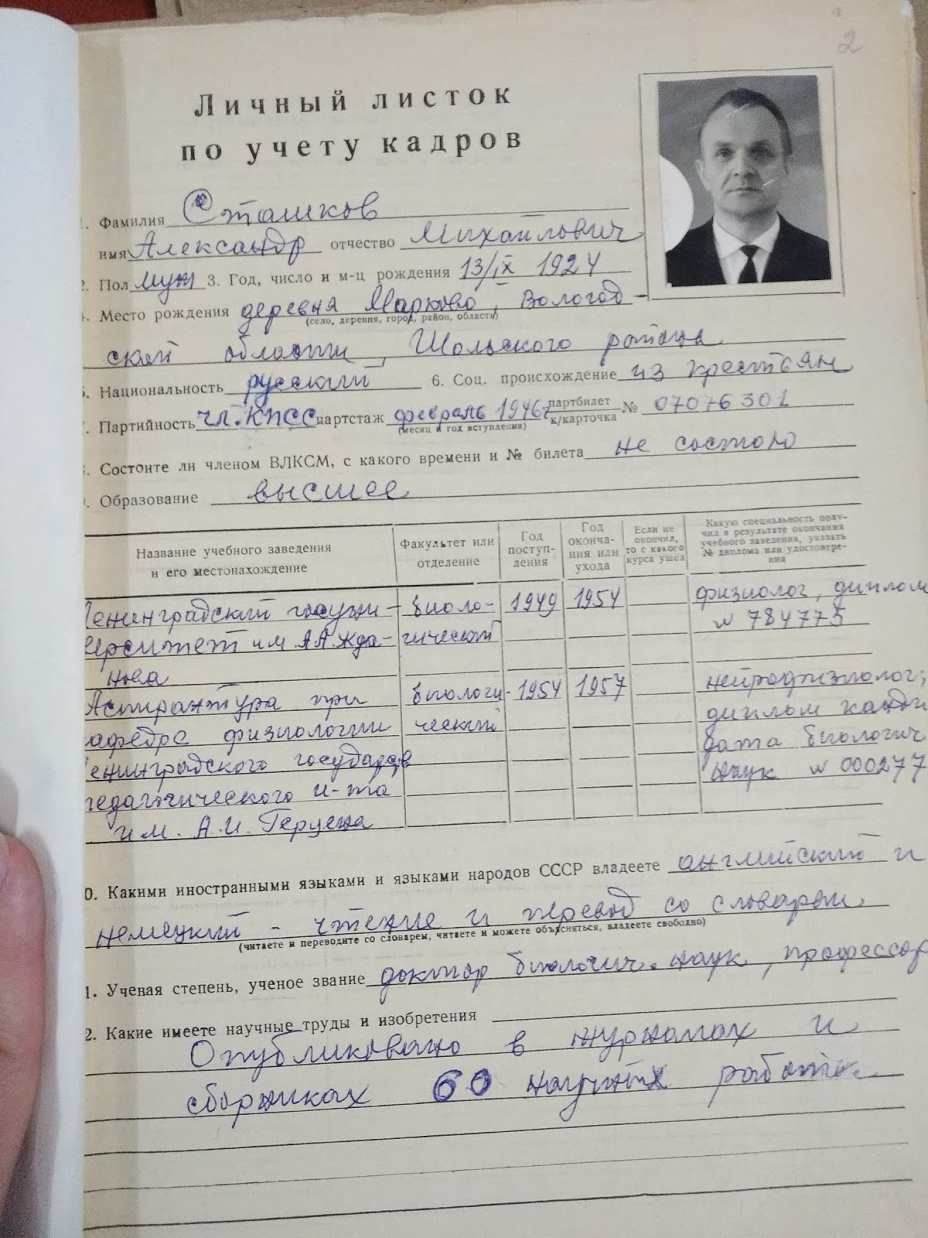 2
Личный листок
по учету кадров
1. Фамилия Сташков
имя Александр отчество Михайлович
2. Пол муж 3. Год, число и м-ц рождения 13/IX 1924
4. Место рождения деревня Марково, Вологод-
(село, деревня, город, район, область)
ской области, Шольского района
5. Национальность русский 6. Соц. происхождение из крестьян
7. Партийность чл. КПСС партстаж февраль 1946г партбилет к/карточка № 07076301
(месяц и год вступления)
8. Состоите ли членом ВЛКСМ, с какого времени и № билета не состою
9. Образование высшее
Название учебного заведения и его местонахождение
Факультет или отделение
Год поступ-ления
Год оконча-ния или ухода
Если не окончил, то с какого курса ушел
Какую специальность полу-чил в результате окончания учебного заведения, указать № диплома или удостовере-ния
Ленинградский госуни- биоло- 1949 1954 физиолог, диплом
верситет им А.А. Жда- гический № 784775
нова
Аспирантура при биологи- 1954 1957 нейрофизиолог;
кафедре физиологии ческий диплом канди
Ленинградского государств дата биологич
педагогического и-та наук № 000277
им. А.И. Герцена
10. Какими иностранными языками и языками народов СССР владеете английский и
немецкий - чтение и перевод со словарем
(читаете и переводите со словарем, читаете и можете объясняться, владеете свободно)
11. Ученая степень, ученое звание доктор биологич. наук, профессор
12. Какие имеете научные труды и изобретения
Опубликовано в журналах и
сборниках 60 научных работ